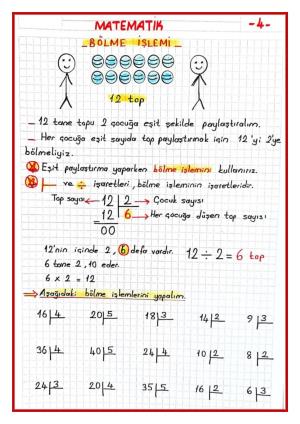 MATEMATİK -4-
BÖLME İŞLEMİ
12 top
_ 12 tane topu 2 çocuğa eşit şekilde paylaştıralım.
_ Her çocuğa eşit sayıda top paylaştırmak için 12'yi 2'ye
bölmeliyiz.
Eşit paylaştırma yaparken bölme işlemini kullanırız.
ve ÷ işaretleri, bölme işleminin işaretleridir.
Top sayısı ← 12 | 2 → Çocuk sayısı
_ 12 | 6 → Her çocuğa düşen top sayısı
00
12'nin içinde 2, 6 defa vardır. 12 ÷ 2 = 6 top
6 tane 2, 10 eder.
6 x 2 = 12
⇒ Aşağıdaki bölme işlemlerini yapalım.
16 | 4 20 | 5 18 | 3 14 | 2 9 | 3
36 | 4 40 | 5 24 | 4 10 | 2 8 | 2
24 | 3 20 | 4 35 | 5 16 | 2 6 | 3